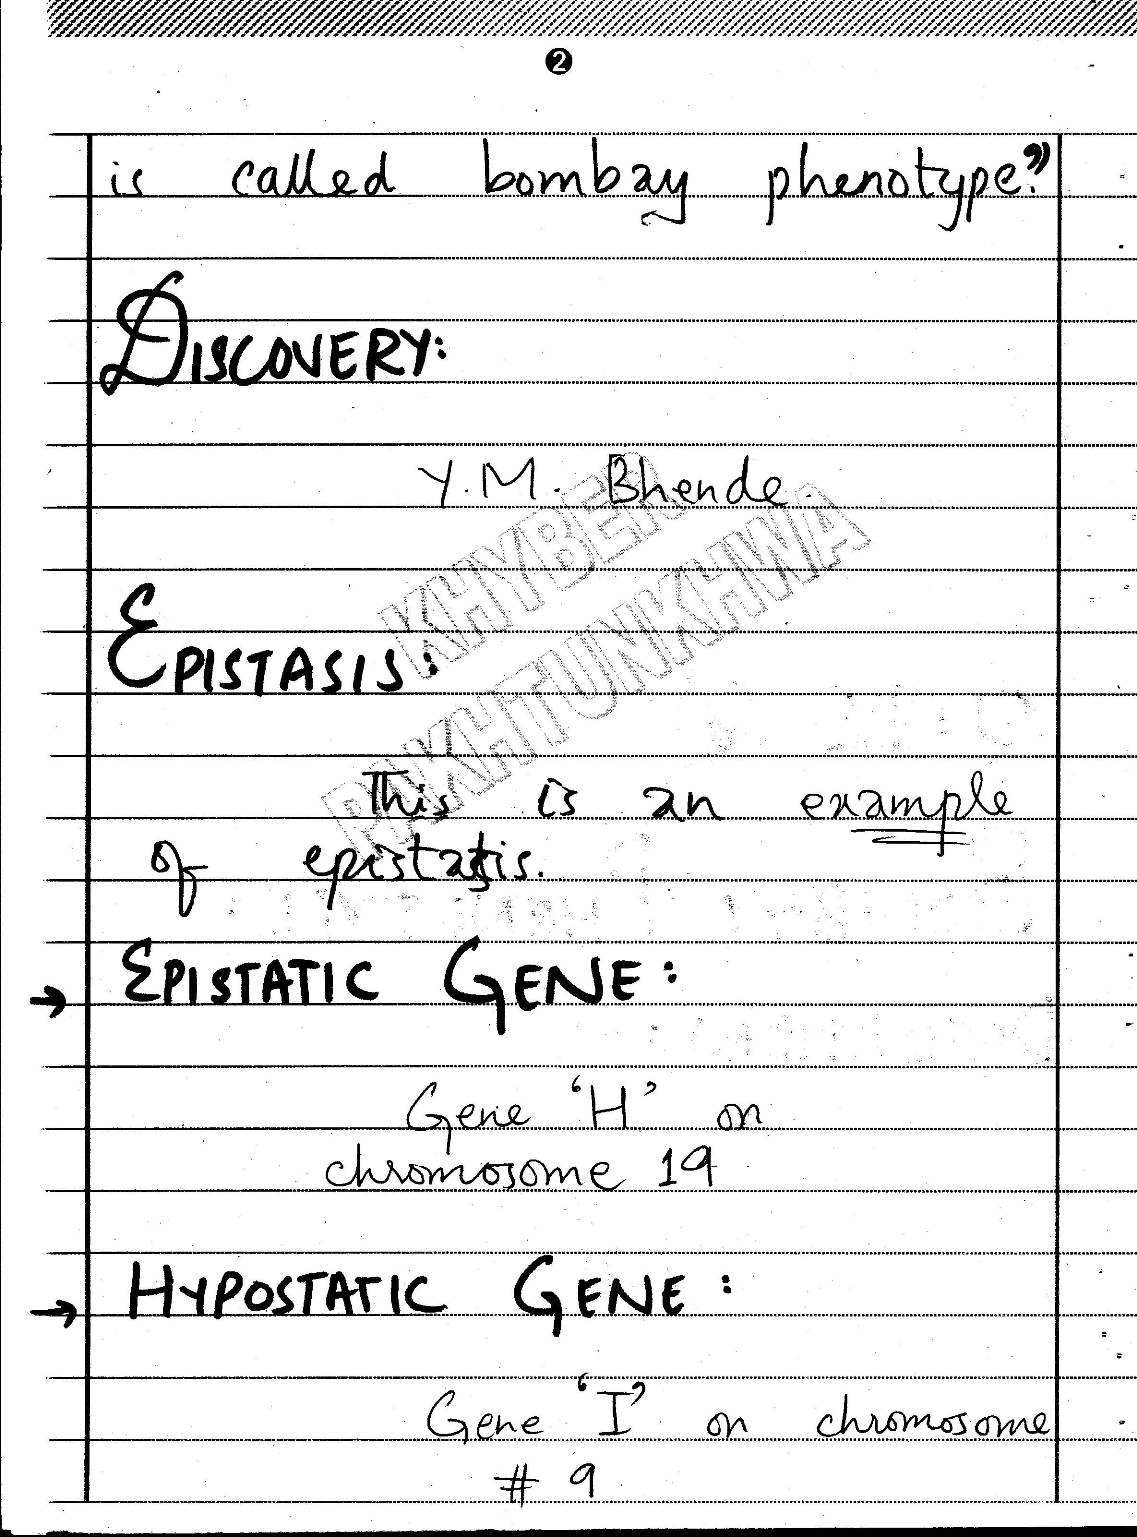 2
is called bombay phenotype."
DISCOVERY:
Y.M. Bhende.
KHYBER
PAKHTUNKHWA
EPISTASIS:
This is an example
of epistasis.
→ EPISTATIC GENE:
Gene 'H' on
chromosome 19
→ HYPOSTATIC GENE:
Gene 'I' on chromosome
# 9